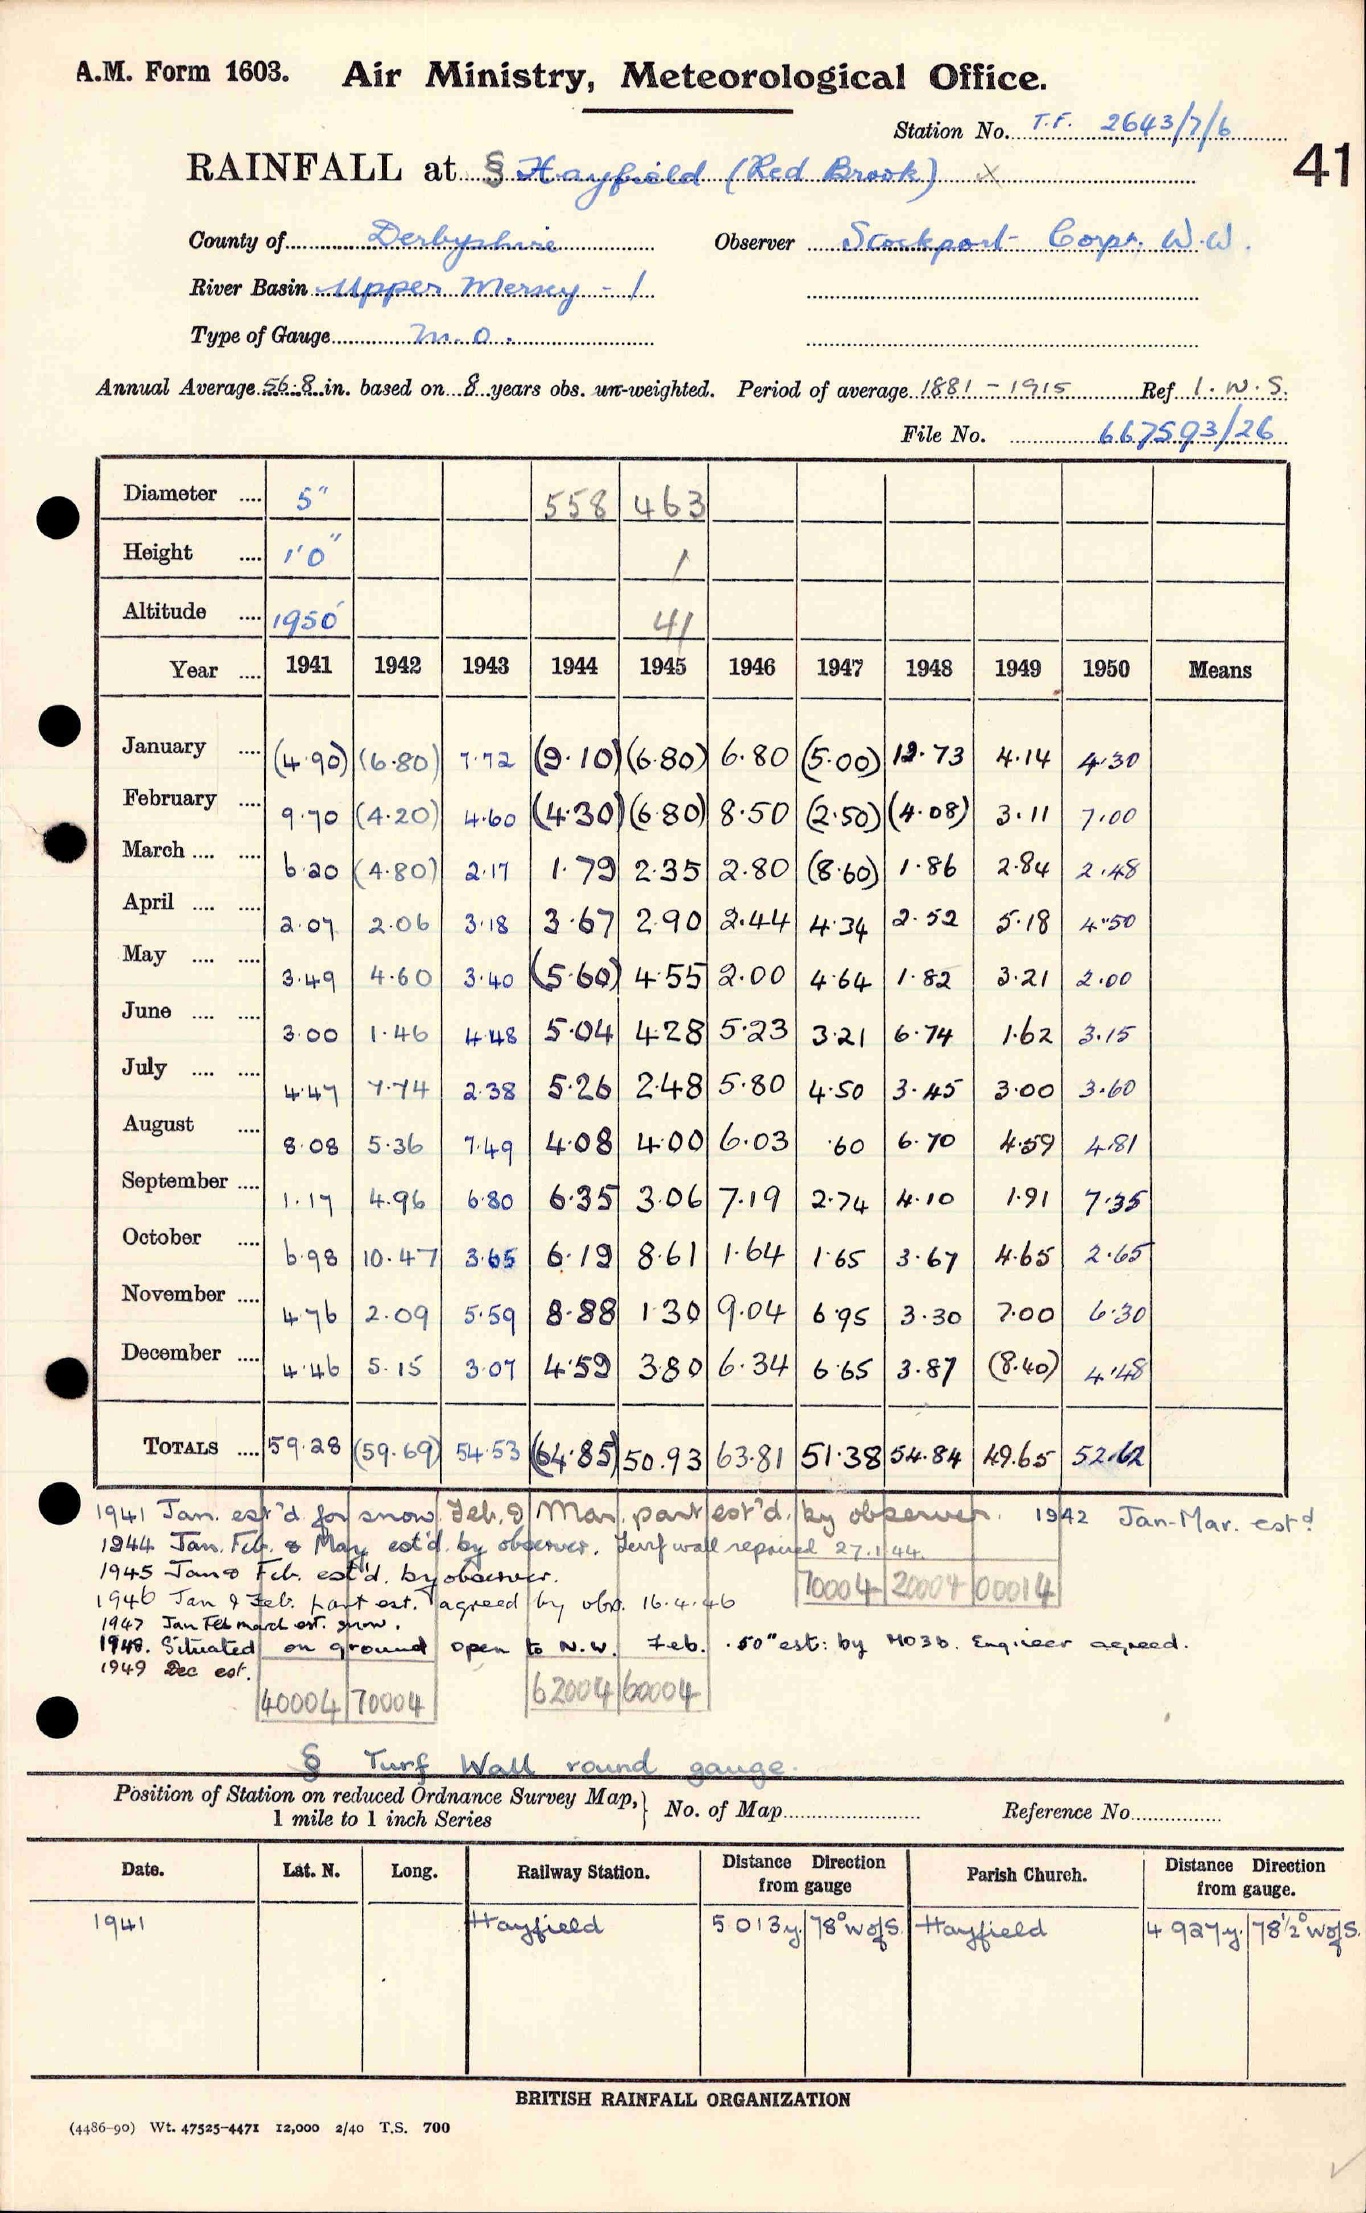 A.M. Form 1603. Air Ministry, Meteorological Office.
Station No. T.F. 2643/7/6
41
RAINFALL at § Hayfield (Red Brook) x
County of Derbyshire Observer Stockport Corpn. W.W.
River Basin Upper Mersey - 1
Type of Gauge M.O.
Annual Average 56.8 in. based on 8 years obs. un-weighted. Period of average 1881 - 1915 Ref I.W.S.
File No. 667593/26
Diameter .... 5" 558 463
Height .... 1'0" 1
Altitude .... 1950' 41
Year .... 1941 1942 1943 1944 1945 1946 1947 1948 1949 1950 Means
January .... (4.90) (6.80) 7.72 (9.10) (6.80) 6.80 (5.00) 12.73 4.14 4.30
February .... 9.70 (4.20) 4.60 (4.30) (6.80) 8.50 (2.50) (4.08) 3.11 7.00
March .... .... 6.20 (4.80) 2.17 1.79 2.35 2.80 (8.60) 1.86 2.84 2.48
April .... .... 2.07 2.06 3.18 3.67 2.90 2.44 4.34 2.52 5.18 4.50
May .... .... 3.49 4.60 3.40 (5.60) 4.55 2.00 4.64 1.82 3.21 2.00
June .... .... 3.00 1.46 4.48 5.04 4.28 5.23 3.21 6.74 1.62 3.15
July .... .... 4.47 7.74 2.38 5.26 2.48 5.80 4.50 3.45 3.00 3.60
August .... 8.08 5.36 7.49 4.08 4.00 6.03 .60 6.70 4.59 4.81
September .... 1.17 4.96 6.80 6.35 3.06 7.19 2.74 4.10 1.91 7.35
October .... 6.98 10.47 3.65 6.19 8.61 1.64 1.65 3.67 4.65 2.65
November .... 4.76 2.09 5.59 8.88 1.30 9.04 6.95 3.30 7.00 6.30
December .... 4.46 5.15 3.07 4.59 3.80 6.34 6.65 3.87 (8.40) 4.48
TOTALS .... 59.28 (59.69) 54.53 (64.85) 50.93 63.81 51.38 54.84 49.65 52.62
1941 Jan. est'd for snow. Feb. & Mar. part est'd. by observer. 1942 Jan-Mar. estd
1944 Jan. Feb. & May est'd. by observer. Turf wall repaired 27.1.44.
1945 Jan & Feb. est'd. by observer.
70004 20004 00014
1946 Jan & Feb. part est. agreed by obs. 16.4.46
1947 Jan Feb march est. snow.
1948. Situated on ground open to N.W. Feb. .50" est: by MO3b. Engineer agreed.
1949 Dec est.
40004 70004 62004 60004
§ Turf Wall round gauge.
Position of Station on reduced Ordnance Survey Map, 1 mile to 1 inch Series } No. of Map Reference No.
Date. Lat. N. Long. Railway Station. Distance from gauge Direction Parish Church. Distance from gauge. Direction
1941 Hayfield 5 013y. 78° W of S. Hayfield 4 927y. 78½° W of S.
BRITISH RAINFALL ORGANIZATION
(4486-90) Wt. 47525-4471 12,000 2/40 T.S. 700